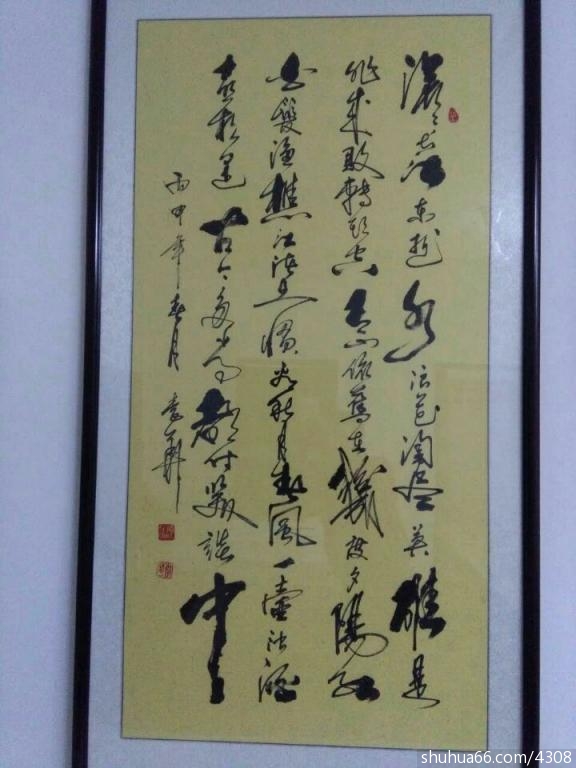 滚滚长江東逝水浪花淘尽英雄是
非成败轉头空青山依舊在幾度夕陽红
白髮渔樵江渚上惯看秋月春風一壶浊酒
喜相逢古今多少事都付笑谈中
丙申年春月
shuhua66.com/4308